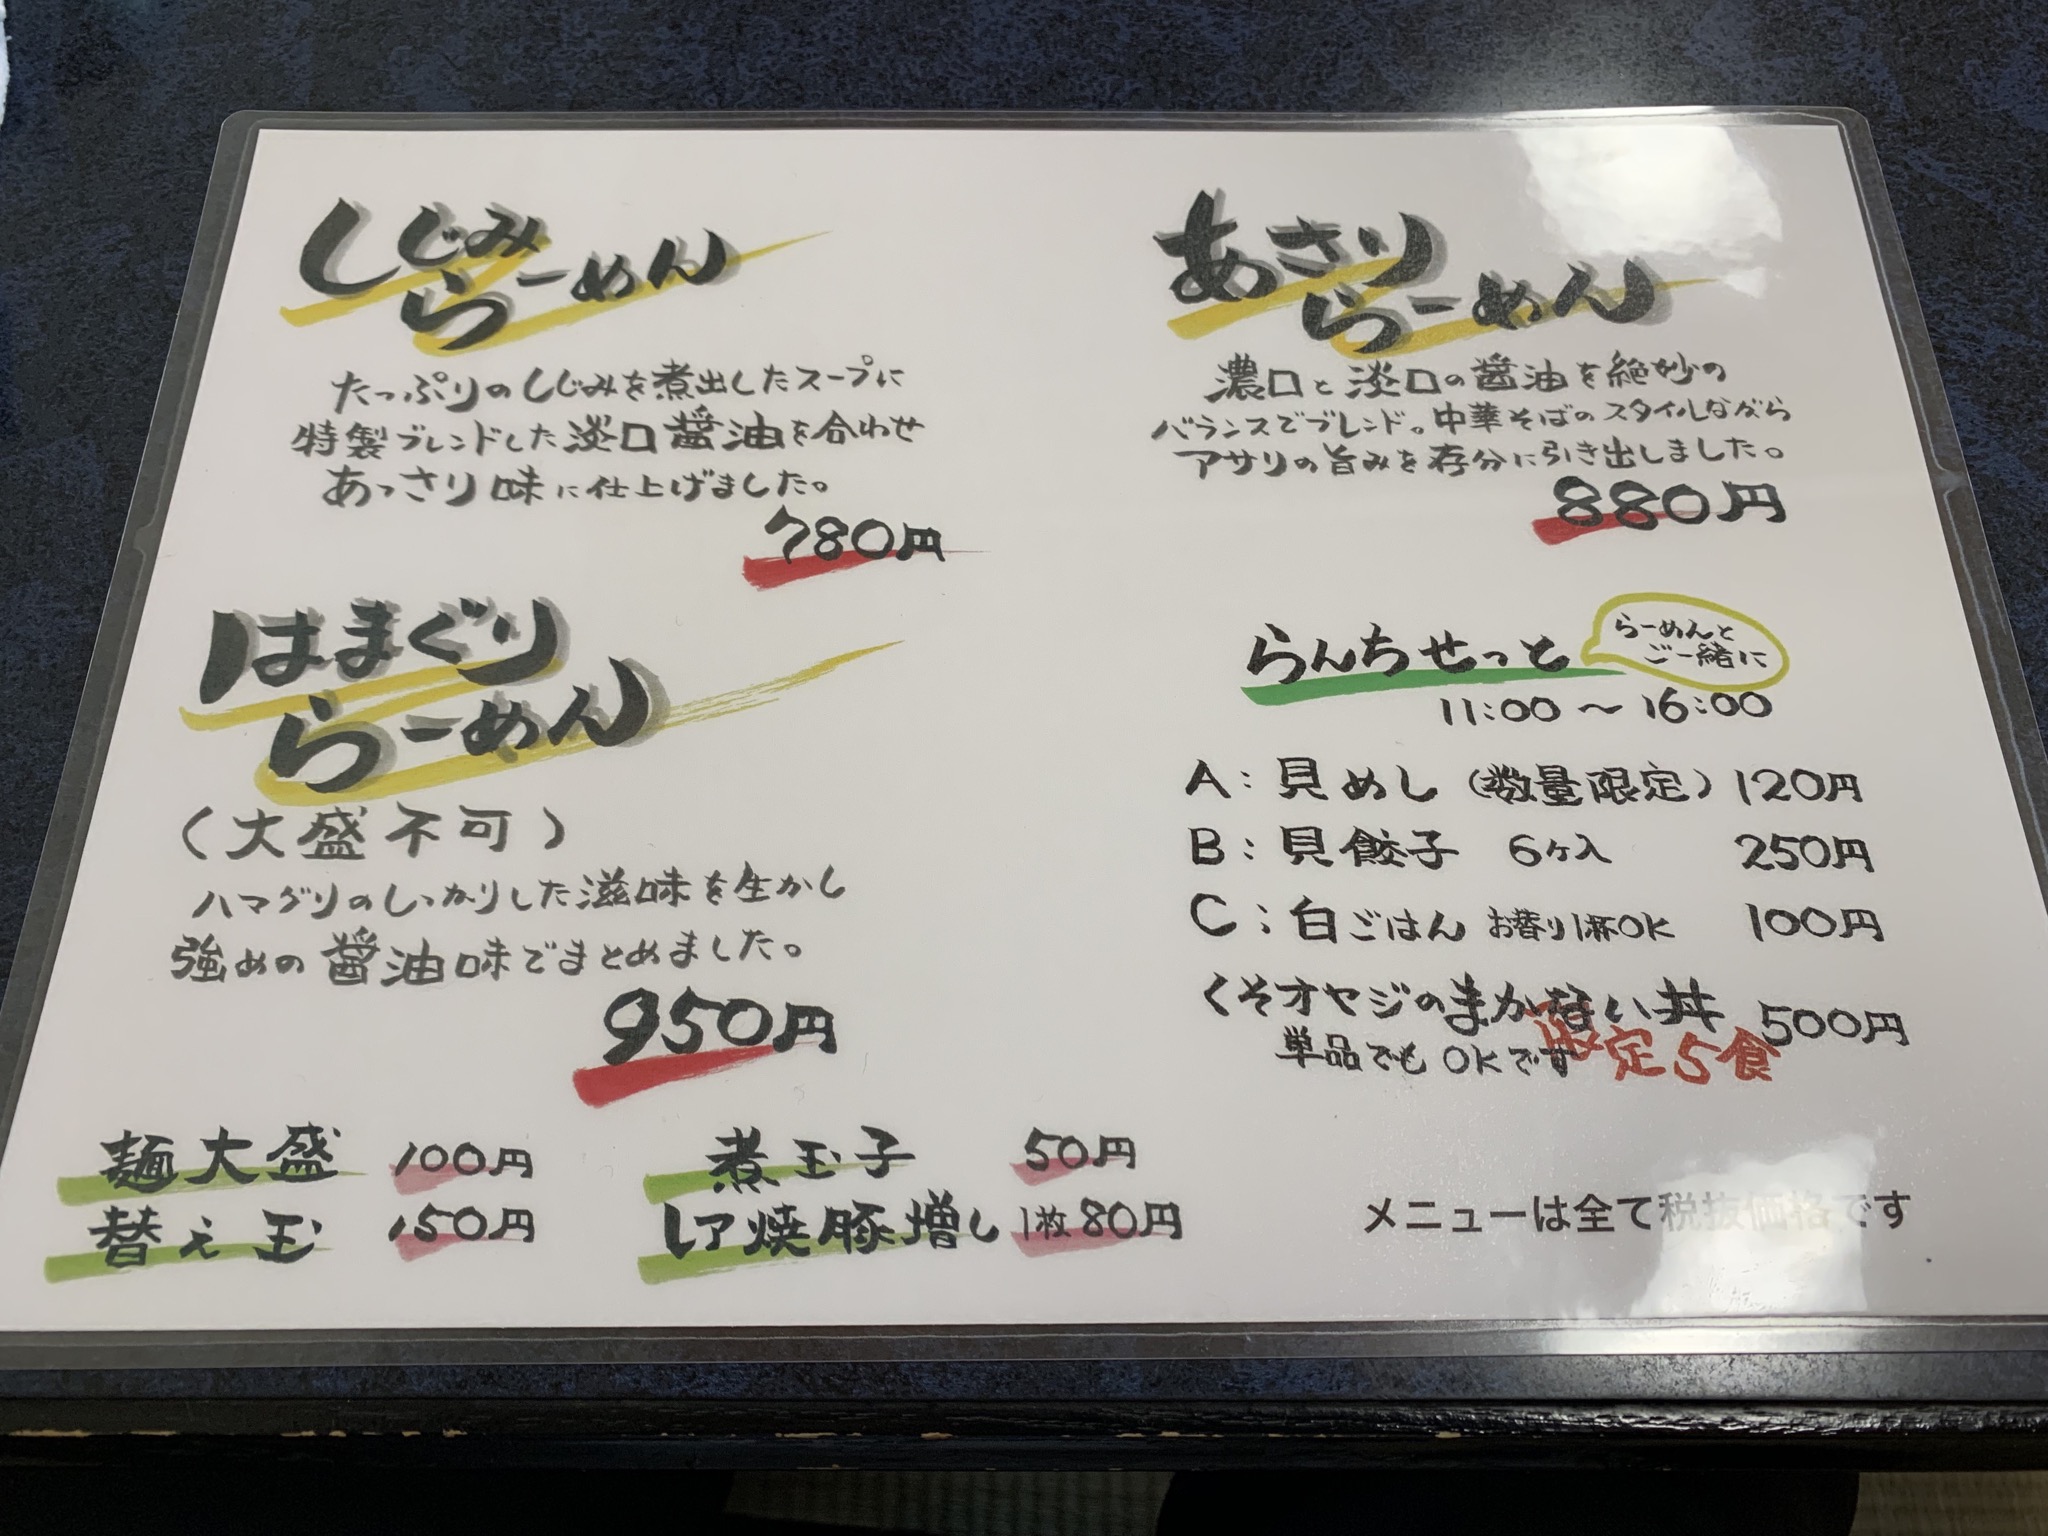 しじみ
らーめん
たっぷりのしじみを煮出したスープに
特製ブレンドした淡口醤油を合わせ
あっさり味に仕上げました。
780円
あさり
らーめん
濃口と淡口の醤油を絶妙の
バランスでブレンド。中華そばのスタイルながら
アサリの旨みを存分に引き出しました。
880円
はまぐり
らーめん
（大盛不可）
ハマグリのしっかりした滋味を生かし
強めの醤油味でまとめました。
950円
らんちせっと
らーめんと
ご一緒に
11:00〜16:00
A：貝めし（数量限定）120円
B：貝餃子 6ヶ入 250円
C：白ごはん お替り1杯OK 100円
くそオヤジのまかない丼 500円
単品でもOKです
限定5食
麺大盛 100円
替え玉 150円
煮玉子 50円
レア焼豚増し 1枚80円
メニューは全て税抜価格です